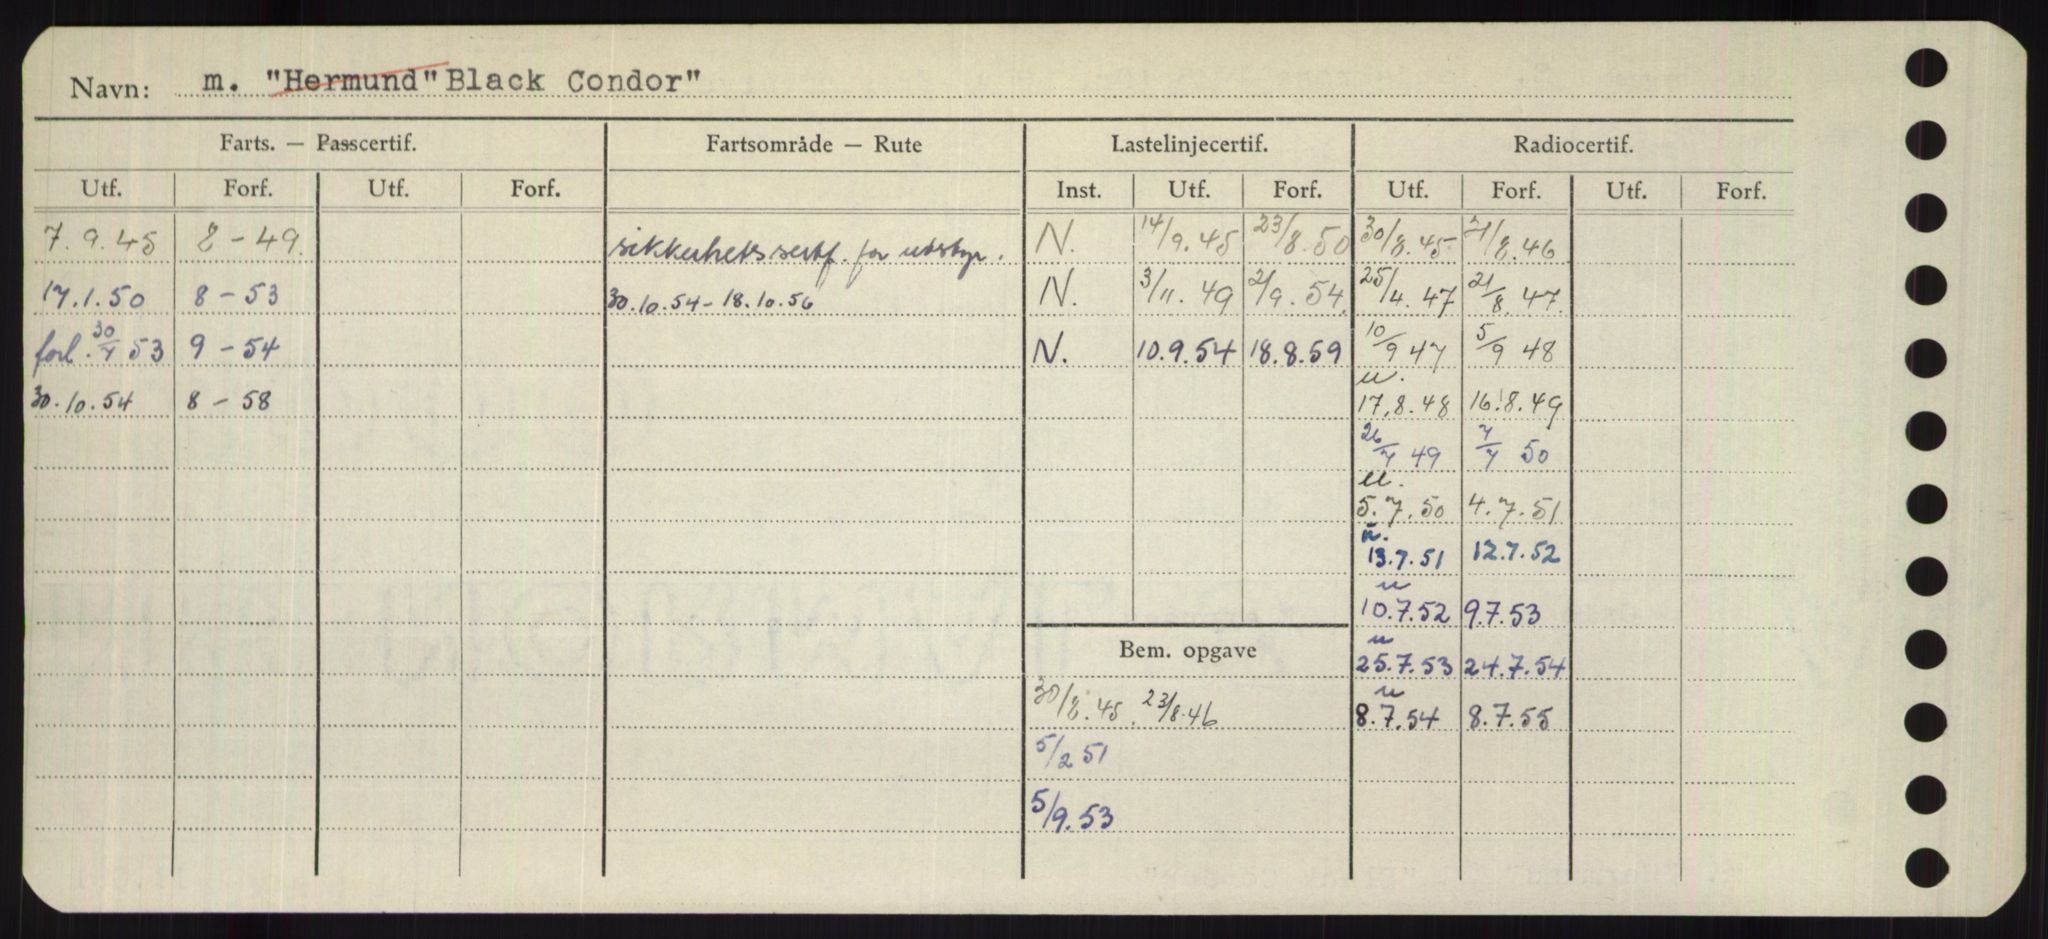 Navn: m. "Hermund" Black Condor"
Farts. — Passcertif. Fartsområde — Rute Lastelinjecertif. Radiocertif.
Utf. Forf. Utf. Forf. Inst. Utf. Forf. Utf. Forf. Utf. Forf.
7.9.45 8-49. sikkerhetssertf. for utstyr. N. 14/9.45 23/8.50 30/8.45 21/8.46
17.1.50 8-53 30.10.54-18.10.56 N. 3/11.49 2/9.54. 25/4.47 21/8.47.
forl. 30/7 53 9-54 N. 10.9.54 18.8.59 10/9 47 5/9 48
u.
30.10.54 8-58 17.8.48 16.8.49
26/7 49 7/7 50
u.
5.7.50 4.7.51
u.
13.7.51 12.7.52
u
10.7.52 9.7.53
u
Bem. opgave 25.7.53 24.7.54
u
30/8.45. 23/8.46 8.7.54 8.7.55
5/2 51
5/9.53